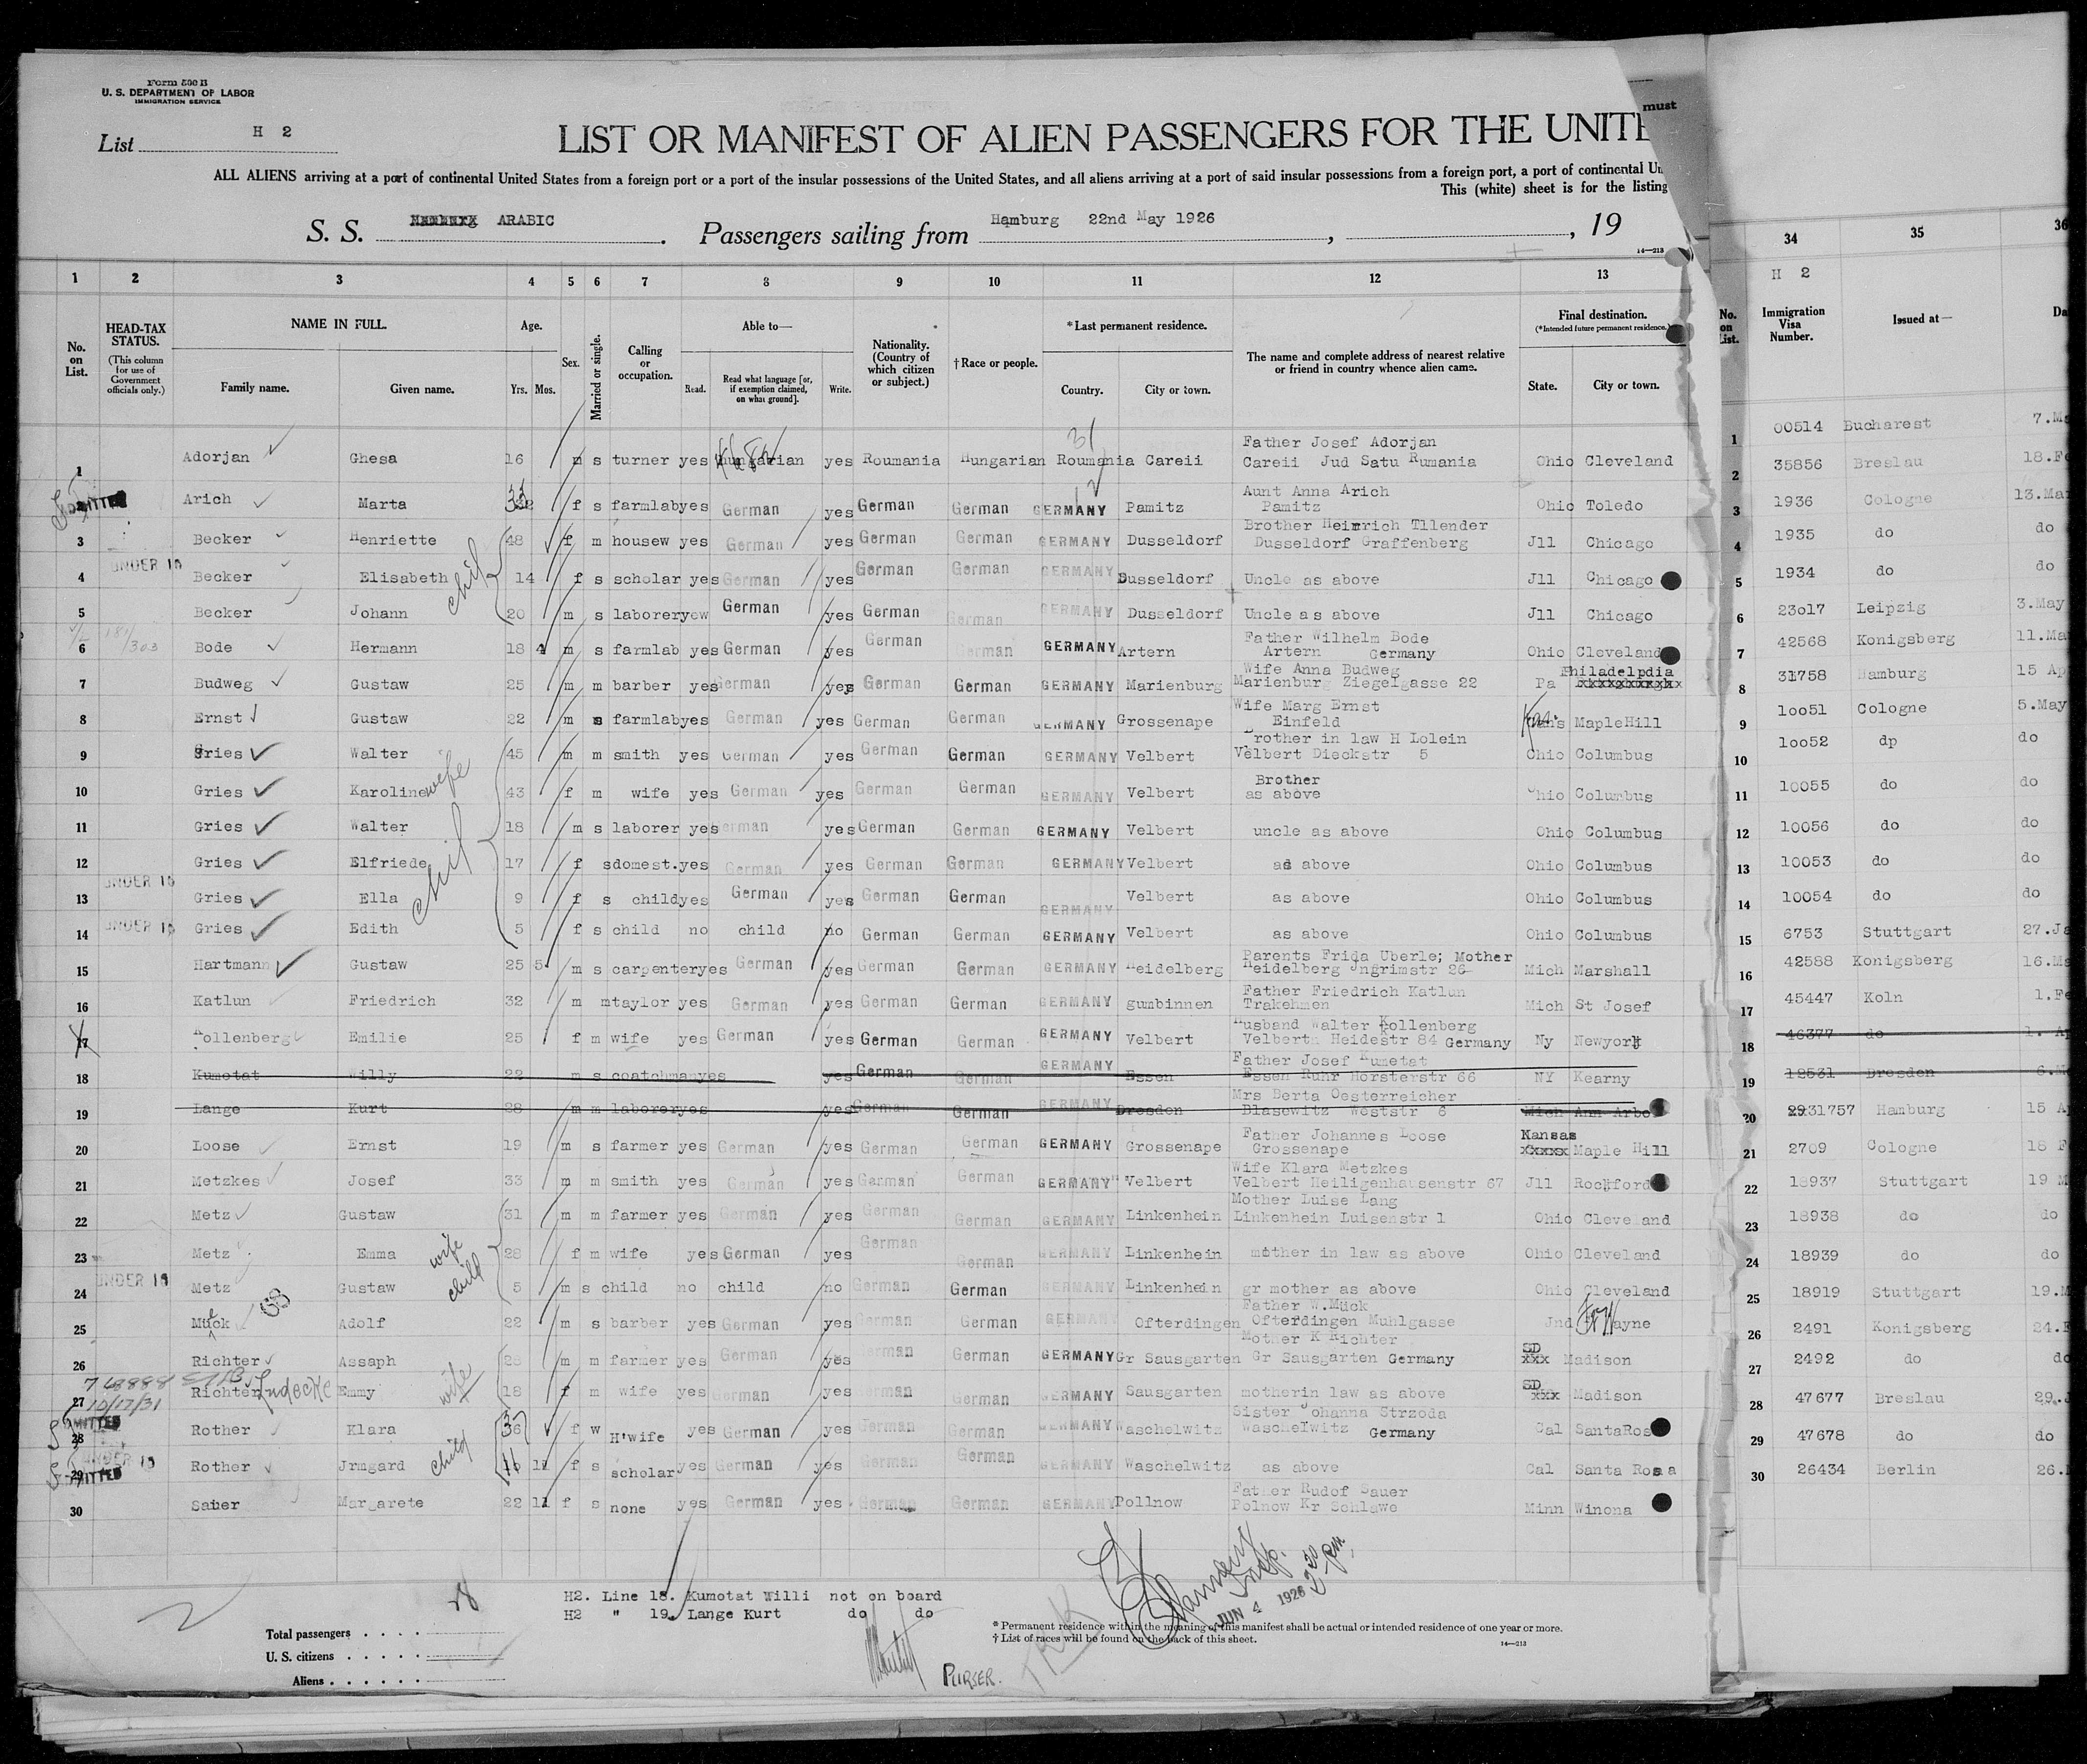 Form 500 B
U. S. DEPARTMENT OF LABOR
IMMIGRATION SERVICE
must
List H 2
LIST OR MANIFEST OF ALIEN PASSENGERS FOR THE UNITE
ALL ALIENS arriving at a port of continental United States from a foreign port or a port of the insular possessions of the United States, and all aliens arriving at a port of said insular possessions from a foreign port, a port of continental Un
This (white) sheet is for the listing
S. S. ARABIC . Passengers sailing from Hamburg 22nd May 1926 , , 19
14—213
1 2 3 4 5 6 7 8 9 10 11 12 13 34 35 36
H 2
No. on List. HEAD-TAX STATUS. (This column for use of Government officials only.) NAME IN FULL. Family name. Given name. Age. Yrs. Mos. Sex. Married or single. Calling or occupation. Able to— Read. Read what language [or, if exemption claimed, on what ground]. Write. Nationality. (Country of which citizen or subject.) † Race or people. * Last permanent residence. Country. City or town. The name and complete address of nearest relative or friend in country whence alien came. Final destination. (* Intended future permanent residence.) State. City or town. No. on List. Immigration Visa Number. Issued at— Da
1 Adorjan Ghesa 16 m s turner yes Hungarian yes Roumania Hungarian Roumania Careii Father Josef Adorjan Careii Jud Satu Rumania Ohio Cleveland
Arich Marta f s farmlab yes German yes German German GERMANY Pamitz Aunt Anna Arich Pamitz Ohio Toledo
3 Becker Henriette 48 f m housew yes German yes German German GERMANY Dusseldorf Brother Heinrich Tllender Dusseldorf Graffenberg Jll Chicago
4 UNDER 16 Becker Elisabeth 14 f s scholar yes German yes German German GERMANY Dusseldorf Uncle as above Jll Chicago
5 Becker Johann child 20 m s laborer yew German yes German German GERMANY Dusseldorf Uncle as above Jll Chicago
6 Bode Hermann 18 4 m s farmlab yes German yes German German GERMANY Artern Father Wilhelm Bode Artern Germany Ohio Cleveland
7 Budweg Gustaw 25 m m barber yes German yes German German GERMANY Marienburg Wife Anna Budweg Marienburg Ziegelgasse 22 Pa Philadelpdia
8 Ernst Gustaw 22 m s farmlab yes German yes German German GERMANY Grossenape Wife Marg Ernst Einfeld Kans MapleHill
9 Gries Walter 45 m m smith yes German yes German German GERMANY Velbert Brother in law H Lolein Velbert Dieckstr 5 Ohio Columbus
10 Gries Karoline wife 43 f m wife yes German yes German German GERMANY Velbert Brother as above Ohio Columbus
11 Gries Walter 18 m s laborer yes German yes German German GERMANY Velbert uncle as above Ohio Columbus
12 Gries Elfriede 17 f s domest. yes German yes German German GERMANY Velbert as above Ohio Columbus
13 UNDER 16 Gries Ella 9 f s child yes German yes German German GERMANY Velbert as above Ohio Columbus
14 UNDER 16 Gries Edith 5 f s child no child no German German GERMANY Velbert as above Ohio Columbus
15 Hartmann Gustaw 25 5 m s carpenter yes German yes German German GERMANY Heidelberg Parents Frida Uberle; Mother Heidelberg Jngrimstr 26 Mich Marshall
16 Katlun Friedrich 32 m m taylor yes German yes German German GERMANY gumbinnen Father Friedrich Katlun Trakehmen Mich St Josef
17 Kollenberg Emilie 25 f m wife yes German yes German German GERMANY Velbert Husband Walter Kollenberg Velberth Heidestr 84 Germany Ny Newyork
18 Kumotat Willy 22 m s coatchman yes yes German German GERMANY Essen Father Josef Kumetat Essen Ruhr Horsterstr 66 NY Kearny
19 Lange Kurt 28 m m laborer yes yes German German GERMANY Dresden Mrs Berta Oesterreicher Blasewitz Weststr 6 Mich Ann Arbo
20 Loose Ernst 19 m s farmer yes German yes German German GERMANY Grossenape Father Johannes Loose Grossenape Kansas Maple Hill
21 Metzkes Josef 33 m m smith yes German yes German German GERMANY Velbert Wife Klara Metzkes Velbert Heiligenhausenstr 67 Jll Rockford
22 Metz Gustaw 31 m m farmer yes German yes German German GERMANY Linkenhein Mother Luise Lang Linkenhein Luisenstr 1 Ohio Cleveland
23 Metz Emma wife 28 f m wife yes German yes German German GERMANY Linkenhein mother in law as above Ohio Cleveland
24 UNDER 16 Metz Gustaw child 5 m s child no child no German German GERMANY Linkenhein gr mother as above Ohio Cleveland
25 Mück Adolf 22 m s barber yes German yes German German GERMANY Ofterdingen Father W.Mück Ofterdingen Muhlgasse Jnd Ft Wayne
26 Richter Assaph 28 m m farmer yes German yes German German GERMANY Gr Sausgarten Mother K Richter Gr Sausgarten Germany SD Madison
27 10/17/31 Richter Emmy wife 18 f m wife yes German yes German German GERMANY Sausgarten motherin law as above SD Madison
28 Rother Klara 36 f w H'wife yes German yes German German GERMANY Waschelwitz Sister Johanna Strzoda Waschelwitz Germany Cal SantaRos
29 UNDER 16 Rother Jrmgard child f s scholar yes German yes German German GERMANY Waschelwitz as above Cal Santa Rosa
30 Sauer Margarete 22 11 f s none yes German yes German German GERMANY Pollnow Father Rudof Sauer Polnow Kr Schlawe Minn Winona
1 00514 Bucharest 7.Ma
2 35856 Breslau 18.Fe
3 1936 Cologne 13.Mar
4 1935 do do
5 1934 do do
6 23o17 Leipzig 3.May
7 42568 Konigsberg 11.Ma
8 31758 Hamburg 15 Ap
9 10o51 Cologne 5.May
10 10o52 dp do
11 10055 do do
12 10056 do do
13 10053 do do
14 10054 do do
15 6753 Stuttgart 27.Ja
16 42588 Konigsberg 16.Ma
17 45447 Koln 1.Fe
18 46377 do 1. Ap
19 12531 Dresden 6.M
20 31757 Hamburg 15 A
21 2709 Cologne 18 F
22 18937 Stuttgart 19 M
23 18938 do do
24 18939 do do
25 18919 Stuttgart 19.M
26 2491 Konigsberg 24.F
27 2492 do do
28 47677 Breslau 29.J
29 47678 do do
30 26434 Berlin 26.
H2. Line 18. Kumotat Willi not on board
H2 " 19. Lange Kurt do do
Total passengers . . . .
U. S. citizens . . . . .
Aliens . . . . . .
PURSER.
Insp.
JUN 4 1926
2 30 pm
* Permanent residence within the meaning of this manifest shall be actual or intended residence of one year or more.
† List of races will be found on the back of this sheet.
14—213